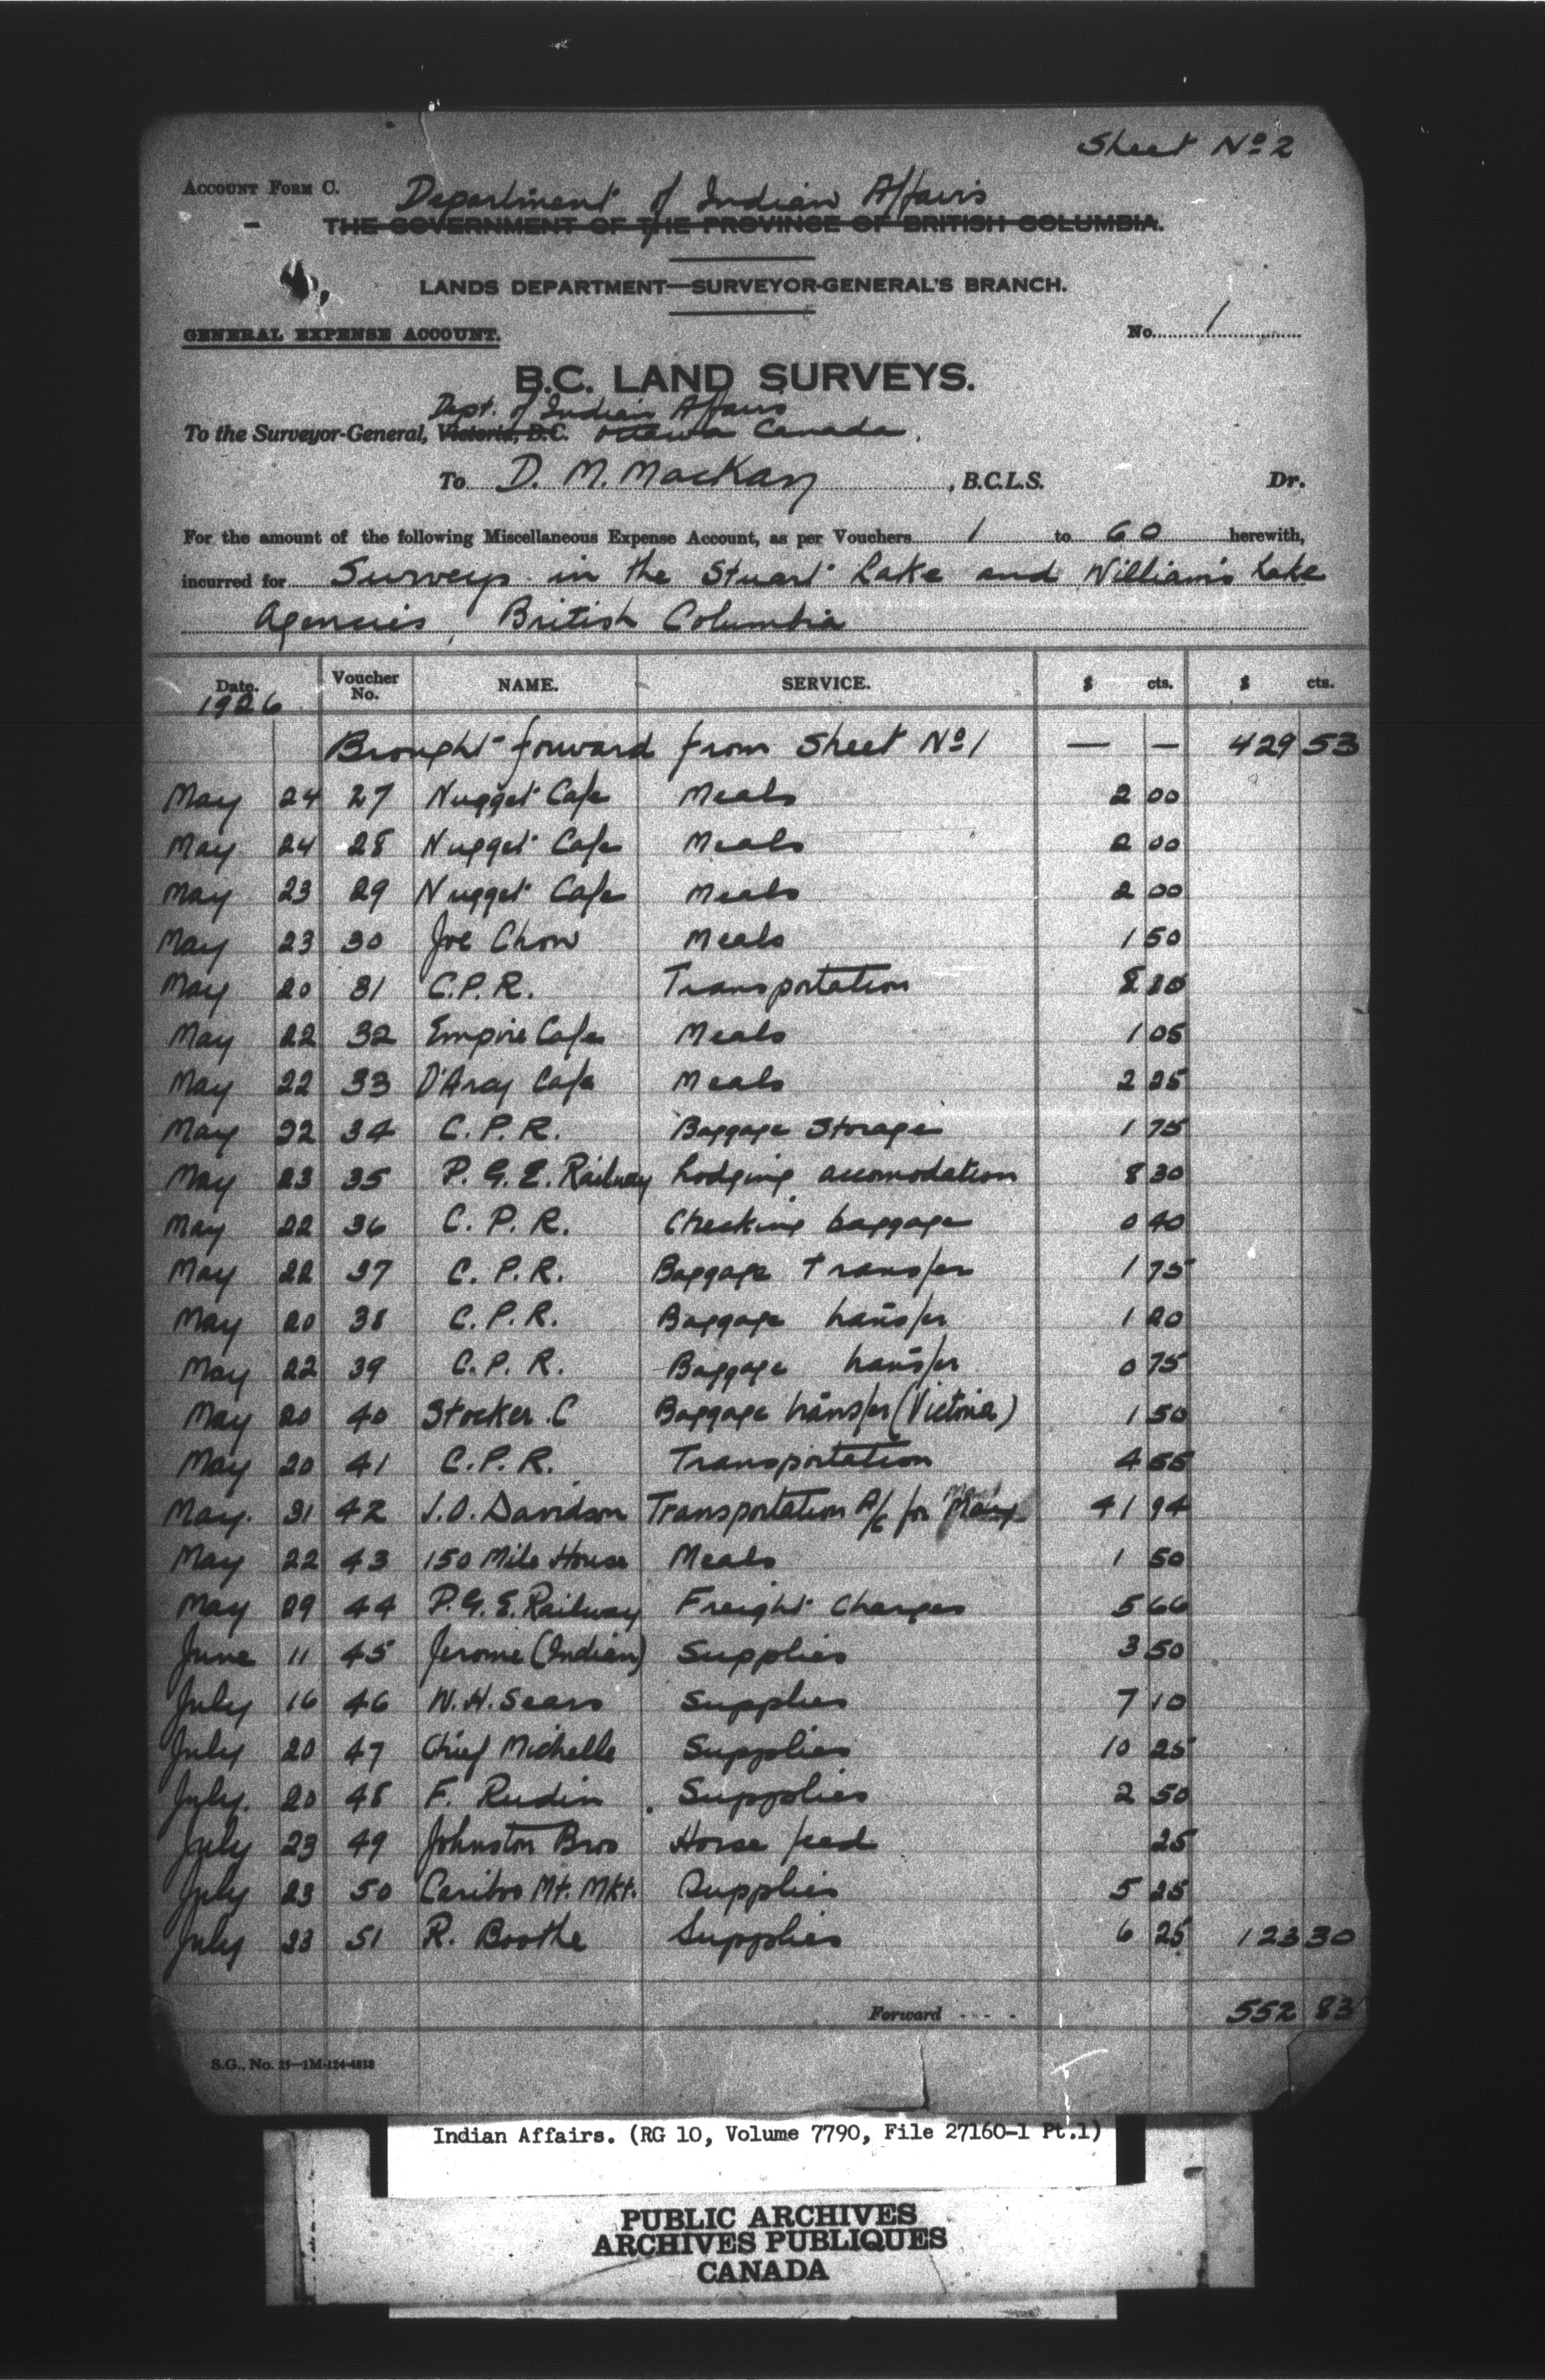 Sheet No 2
ACCOUNT FORM C.
Department of Indian Affairs
THE GOVERNMENT OF THE PROVINCE OF BRITISH COLUMBIA.
LANDS DEPARTMENT—SURVEYOR-GENERAL'S BRANCH.
GENERAL EXPENSE ACCOUNT.
No. 1
B.C. LAND SURVEYS.
Dept. of Indian Affairs
To the Surveyor-General, Victoria, B.C. Ottawa Canada.
To D. M. MacKay, B.C.L.S. Dr.
For the amount of the following Miscellaneous Expense Account, as per Vouchers 1 to 60 herewith,
incurred for Surveys in the Stuart Lake and William's Lake
Agencies, British Columbia
Date. Voucher No. NAME. SERVICE. $ cts. $ cts.
1926
Brought forward from Sheet No 1 — — 429 53
May 24 27 Nugget Cafe Meals 2 00
May 24 28 Nugget Cafe Meals 2 00
May 23 29 Nugget Cafe Meals 2 00
May 23 30 Joe Chow Meals 1 50
May 20 31 C.P.R. Transportation 8 10
May 22 32 Empire Cafe Meals 1 05
May 22 33 D'Arcy Cafe Meals 2 25
May 22 34 C.P.R. Baggage Storage 1 75
May 23 35 P.G.E. Railway Lodging accomodation 8 30
May 22 36 C.P.R. Checking baggage 0 40
May 22 37 C.P.R. Baggage transfer 1 75
May 20 38 C.P.R. Baggage transfer 1 20
May 22 39 C.P.R. Baggage transfer 0 75
May 20 40 Stocker. C Baggage transfer (Victoria) 1 50
May 20 41 C.P.R. Transportation 4 55
May. 31 42 J.O. Davidson Transportation A/c for May 41 94
May 22 43 150 Mile House Meals 1 50
May 29 44 P.G.E. Railway Freight Charges 5 66
June 11 45 Jerome (Indian) Supplies 3 50
July 16 46 W.H. Sears Supplies 7 10
July 20 47 Chief Michelle Supplies 10 25
July. 20 48 F. Rudin Supplies 2 50
July 23 49 Johnston Bros Horse feed 25
July 23 50 Cariboo Mt. Mkt. Supplies 5 25
July 23 51 R. Boothe Supplies 6 25 123 30
Forward 552 83
S.G., No. 25—1M-124-4838
Indian Affairs. (RG 10, Volume 7790, File 27160-1 Pt.1)
PUBLIC ARCHIVES
ARCHIVES PUBLIQUES
CANADA